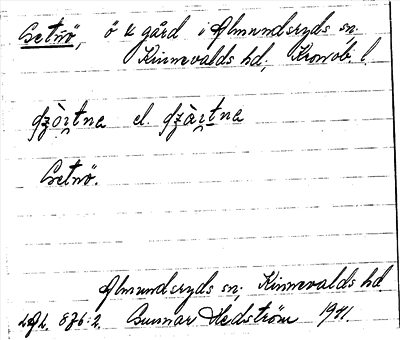 Getnö, ö o gård i Almundsryds sn,
Kinnevalds hd, Kronob. l.
el.
Getnö.
Almundsryds sn, Kinnevalds hd
876:2. Gunnar Hedström 1941.